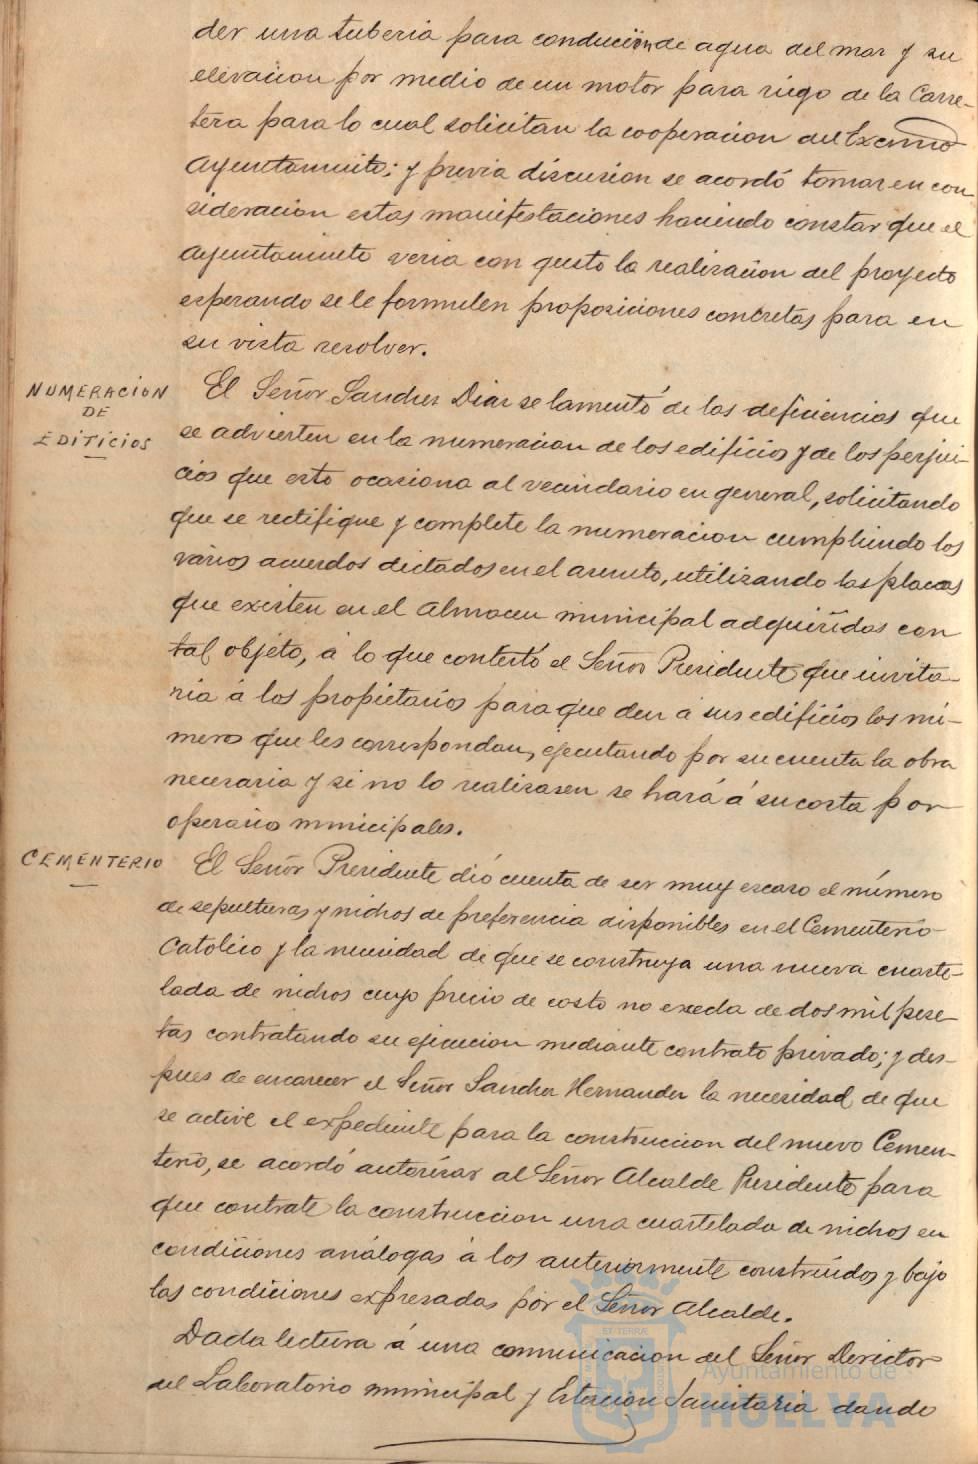 der una tuberia para conduciónde agua del mar y su
elevacion por medio de un motor para riego de la Carre-
tera para lo cual solicitan la cooperacion del Excmo
Ayuntamiento; y previa discusion se acordó tomar en con
sideracion estas manifestaciones haciendo constar que el
Ayuntamiento veria con gusto la realizacion del proyecto
esperando se le formulen proposiciones concretas para en
su vista resolver.
NUMERACION
DE
EDIFICIOS
El Señor Sanchez Diaz se lamentó de las deficiencias que
se advierten en la numeracion de los edificios y de los perjui-
cios que esto ocasiona al vecindario en general, solicitando
que se rectifique y complete la numeracion cumpliendo los
varios acuerdos dictados en el asunto, utilizando las placas
que existen en el Almacen municipal adquiridas con
tal objeto, á lo que contestó el Señor Presidente que invita-
ria á los propietarios para que den a sus edificios los nú-
meros que les correspondan, ejecutando por su cuenta la obra
necesaria y si no lo realizasen se hará á su costa por
operarios municipales.
CEMENTERIO
El Señor Presidente dió cuenta de ser muy escaso el número
de sepulturas y nichos de preferencia disponibles en el Cementerio
Catolico y la necesidad de que se construya una nueva cuarte-
lada de nichos cuyo precio de costo no exceda de dos mil pese-
tas contratando su ejecucion mediante contrato privado; y des-
pues de encarecer el Señor Sanchez Hernandez la necesidad de que
se active el expediente para la construccion del nuevo Cemen-
terio, se acordó autorizar al Señor Alcalde Presidente para
que contrate la construccion una cuartelada de nichos en
condiciones análogas á los anteriormente construidos y bajo
las condiciones expresadas por el Señor Alcalde.
Dada lectura á una comunicacion del Señor Director
del Laboratorio municipal y Estacion Sanitaria dando
Ayuntamiento de
HUELVA